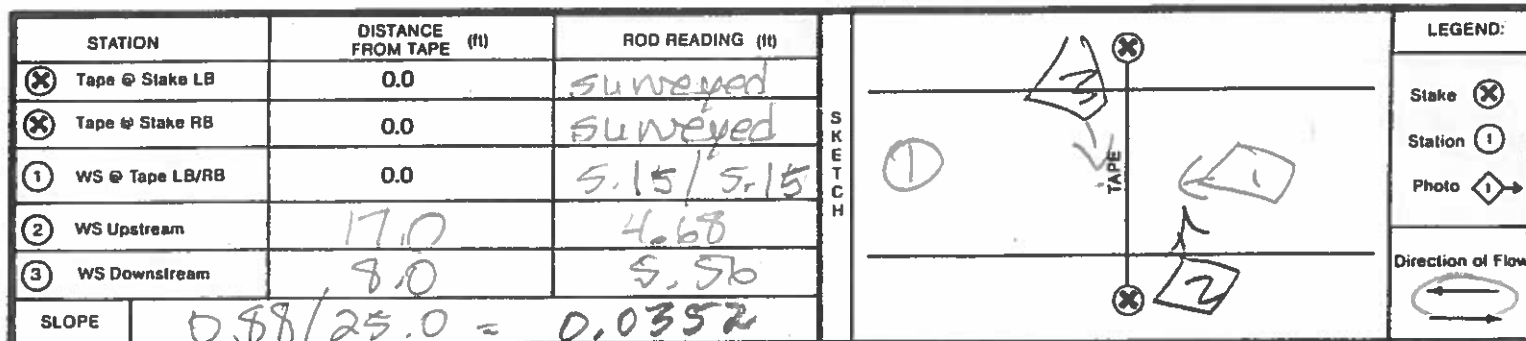 STATION DISTANCE FROM TAPE (ft) ROD READING (ft)
Tape @ Stake LB 0.0 surveyed
Tape @ Stake RB 0.0 surveyed
1 WS @ Tape LB/RB 0.0 5.15/5.15
2 WS Upstream 17.0 4.68
3 WS Downstream 8.0 5.56
SLOPE 0.88/25.0 = 0.0352
SKETCH
3
1
TAPE
1
2
LEGEND:
Stake
Station 1
Photo 1
Direction of Flow